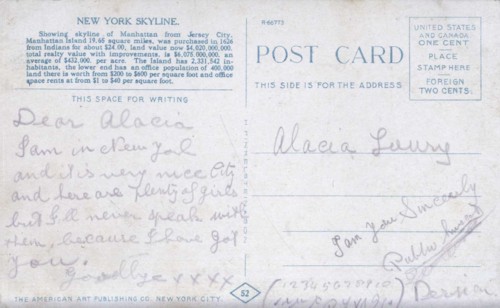 NEW YORK SKYLINE.
Showing skyline of Manhattan from Jersey City.
Manhattan Island 19.65 square miles, was purchased in 1626
from Indians for about $24.00, land value now $4,020,000,000.
total realty value with improvements, is $6,075,000,000, an
average of $432,000. per acre. The Island has 2,331,542 in-
habitants, the lower end has an office population of 400,000
land there is worth from $200 to $600 per square foot and office
space rents at from $1 to $40 per square foot.
THIS SPACE FOR WRITING
Dear Alacia
I am in New York
and it is very nice City
and here are plenty of girls
but I'll never speak with
them, because I have got
you.
Goodbye xxxx
THE AMERICAN ART PUBLISHING CO. NEW YORK CITY.
52
R66773
POST CARD
THIS SIDE IS FOR THE ADDRESS
UNITED STATES
AND CANADA
ONE CENT
PLACE
STAMP HERE
FOREIGN
TWO CENTS:
Alacia Lowry
I am You Sincerely
(12345678910